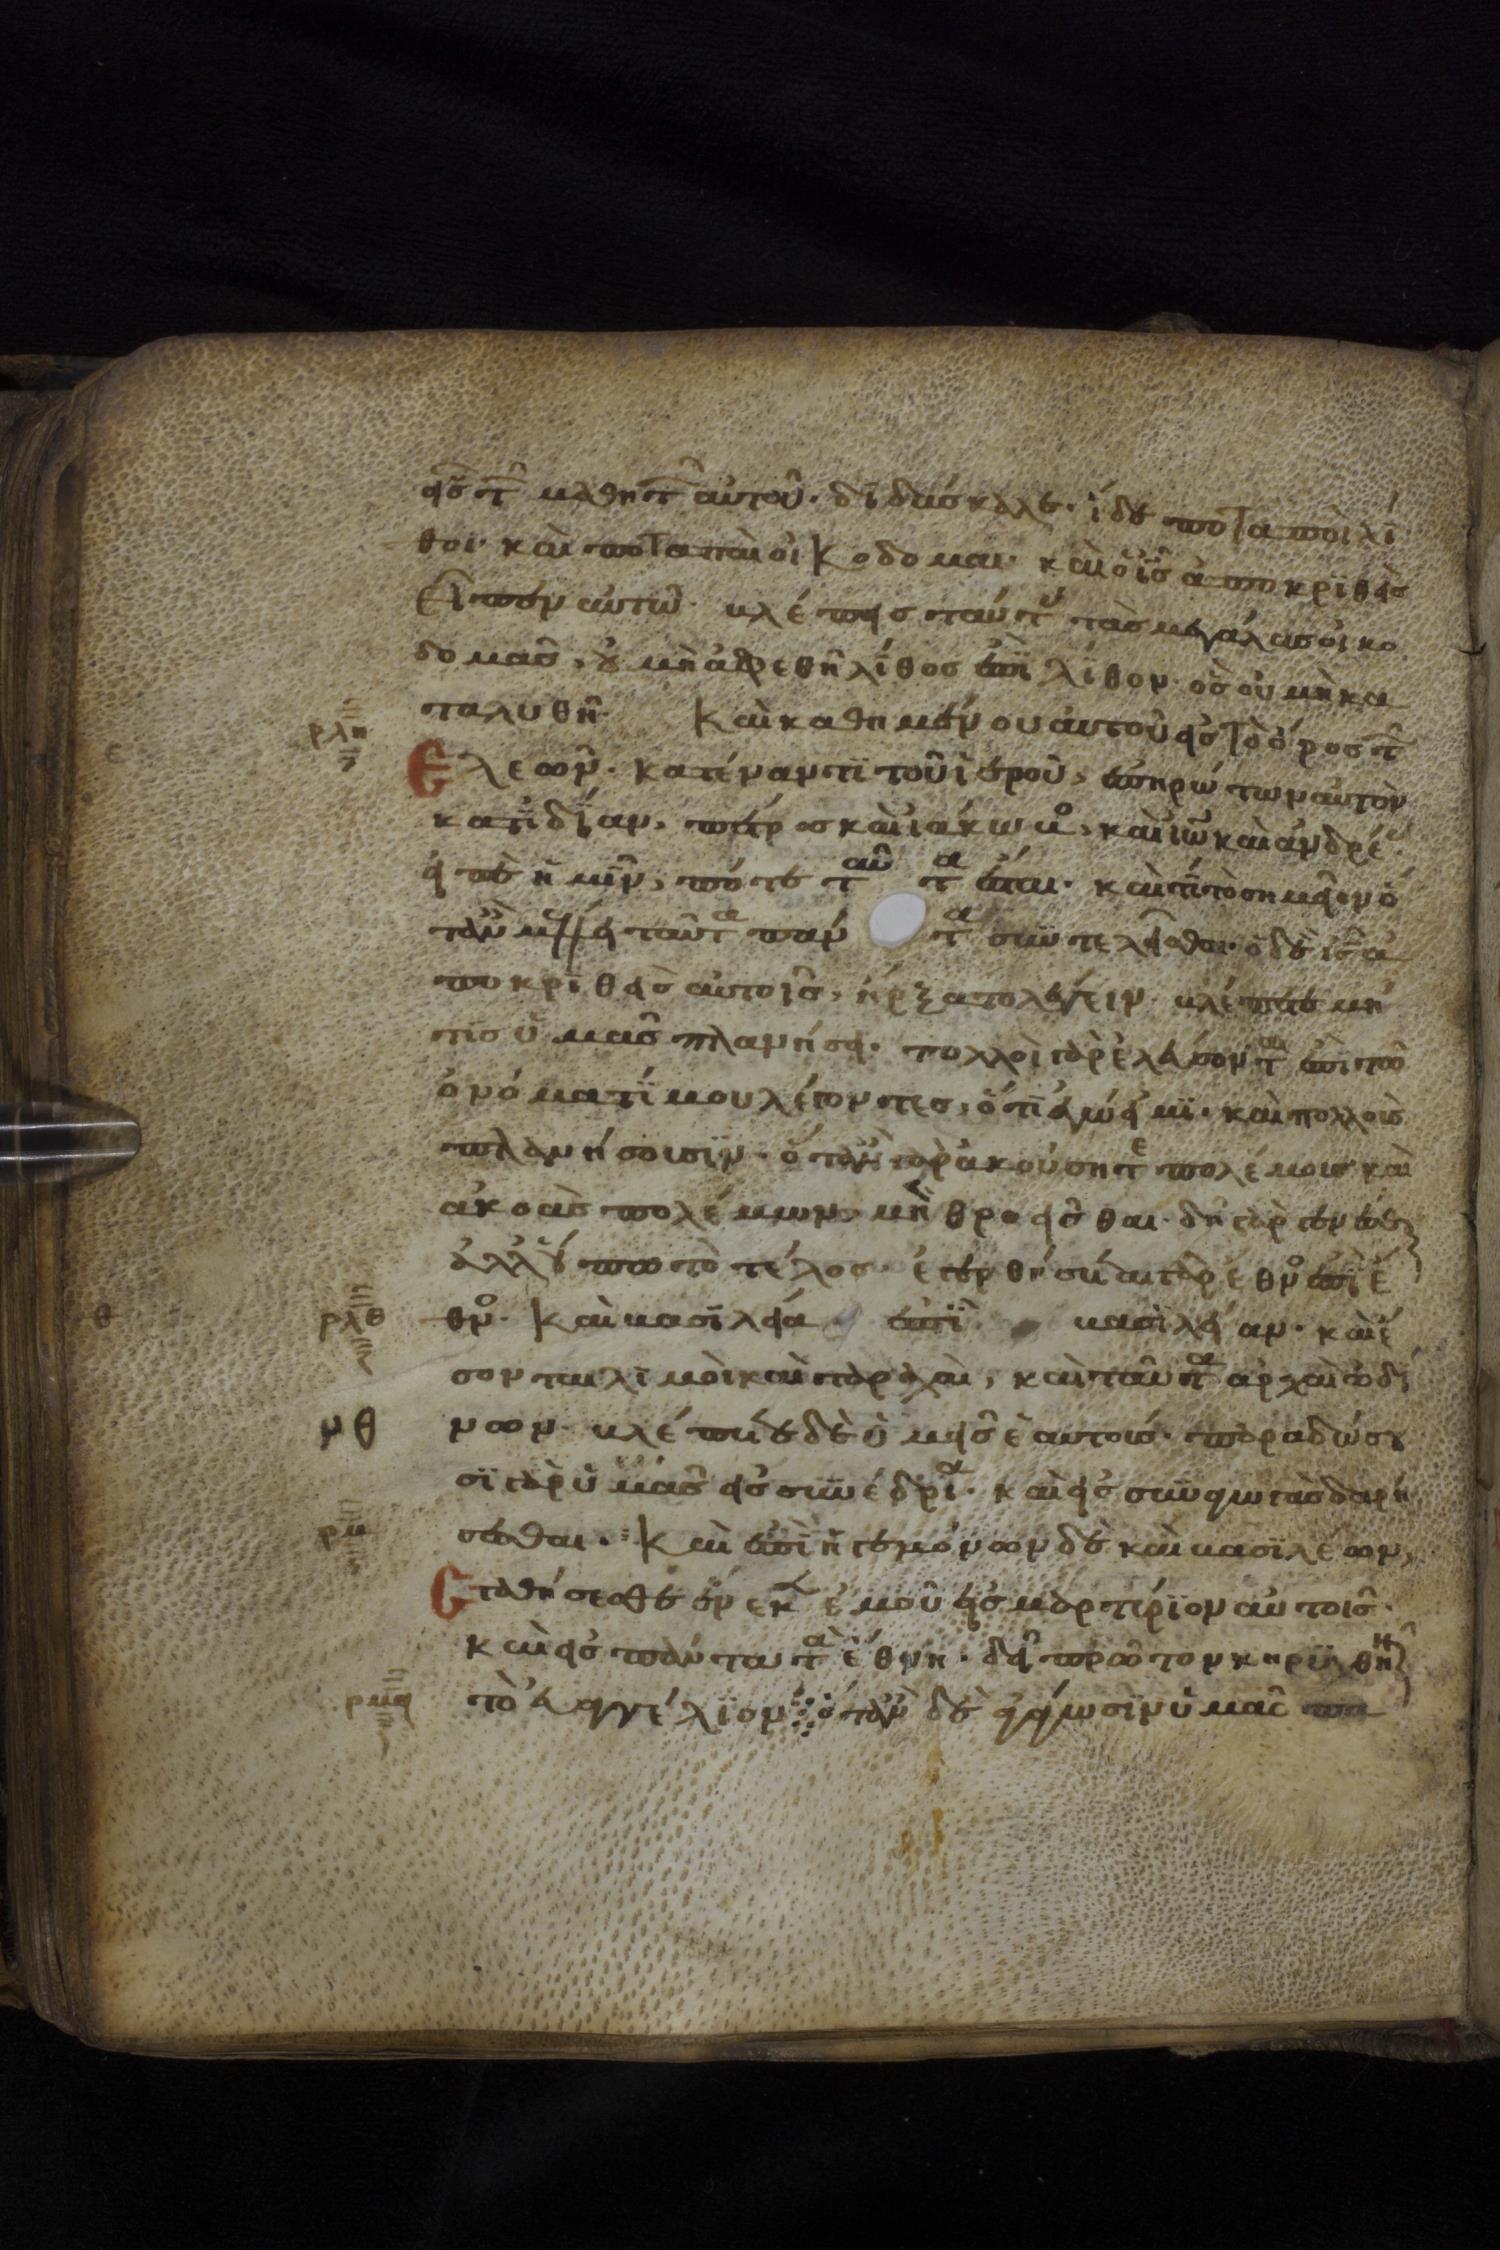 εἷς τῶν μαθητῶν αὐτοῦ· διδάσκαλε· ἴδε ποταποὶ λί
θοι· καὶ ποταπαὶ οἰκοδομαι· καὶ ὁ ις ἀποκριθεὶς
εἶπεν αὐτῶ· βλέπεις ταύτ τὰς μεγάλας οἰκο
δομας, οὐ μὴ ἀφεθῆ λίθος ἐπὶ λίθον· ὃς οὐ μὴ κα
ρλη
ταλυθῆ· Καὶ καθημένου αὐτοῦ εἰς τὸ ὄρος τῶν
Ελεων· κατέναντι τοῦ ἱεροῦ, ἐπηρώτων αὐτὸν
κατιδίαν, πέτρος καὶ ιάκωβο, καὶ ιω καὶ ἀνδρέ
εἰπὲ ἡμῖν, πότε ταῦ τα ἔσται· καὶ τί τὸ σημεῖον ὅ
ταν μέλλει ταῦτα πάν τα συντελεῖσθαι· ὁ δὲ ις ἀ
ποκριθεὶς αὐτοῖς, ήρξατο λέγειν· βλέπετε μή
τις ὑμας πλανήσει· πολλοὶ γὰρ ἐλεύσονται ἐπὶ τῶ
ὀνόματί μου λέγοντες, ὅτι ἐγώ εἰμι· καὶ πολλοὺς
πλανήσουσιν· ὅταν γὰρ ἀκούσητε πολέμους καὶ
ἀκοὰς πολέμων, μὴ θροεῖσθαι· δεῖ γὰρ γενέσ
ἀλλ οὔπω τὸ τέλος· ἐγερθήσεται γὰρ ἔθνο ἐπὶ ἔ
θ
ρλθ
θνο· Καὶ βασιλεία ἐπὶ βασιλείαν· καὶ ἔ
σονται λιμοὶ καὶ ταραχαὶ, καὶ ταῦτα ἀρχαὶ ὠδί
μθ
νων· βλέπετε δὲ ὑμεῖς ἑαυτούς· παραδώσου
σι γὰρ ὑμας εἰς συνέδρια· καὶ εἰς συναγωγὰς δαρή
ρμ
σεσθαι· Καὶ ἐπὶ ἡγεμόνων δὲ καὶ βασιλέων,
Σταθήσεσθε ἕνεκ ἐμοῦ εἰς μαρτύριον αὐτοῖς·
καὶ εἰς πάντα τὰ ἔθνη· δεῖ πρῶτον κηρυχθῆν
ρμα
τὸ εὐαγγέλιον· ὅταν δὲ ἀγάγωσιν ὑμας πα